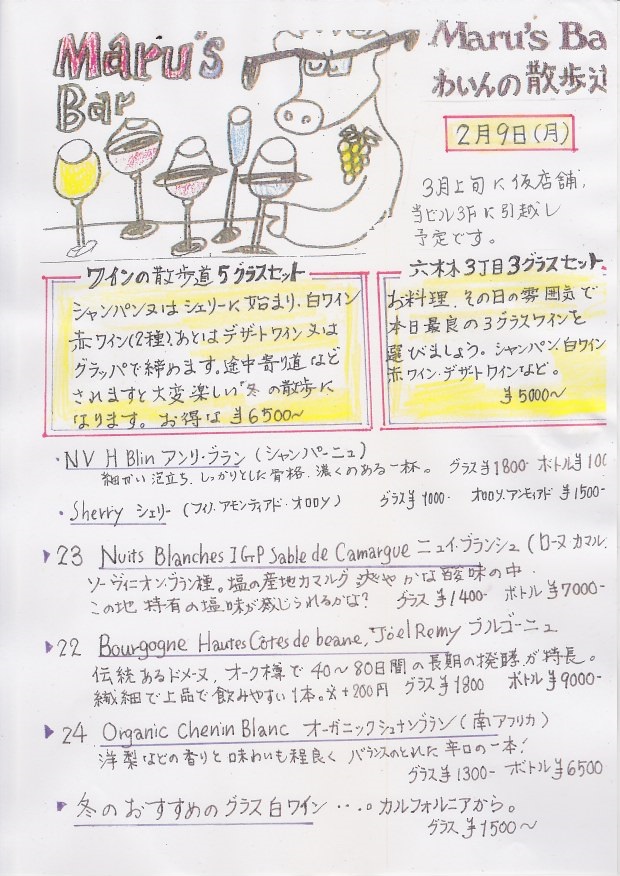 Maru's
Bar
Maru's Ba
わいんの散歩道
2月9日(月)
3月上旬に仮店舗、
当ビル3Fに引越し
予定です。
ワインの散歩道5グラスセット
シャンパン又はシェリーに始まり、白ワイン
赤ワイン(2種)あとはデザートワイン又は
グラッパで締めます。途中寄り道など
されますと大変楽しい冬の散歩に
なります。 お得な ¥6500〜
六本木3丁目3グラスセット
お料理、その日の雰囲気で
本日最良の3グラスワインを
選びましょう。シャンパン、白ワイン
赤ワイン・デザートワインなど。
¥5000〜
・NV H Blin アンリ・ブラン (シャンパーニュ)
細かい泡立ち、しっかりとした骨格、濃くのある一杯。 グラス¥1800- ボトル¥100
・Sherry シェリー (フィノ・アモンティアド・オロロソ) グラス¥1000- オロロソ、アンモティアド ¥1500-
23 Nuits Blanches IGP Sable de Camargue ニュイ・ブランシュ (ローヌ カマル
ソーヴィニオン・ブラン種。塩の産地カマルグ 爽やかな酸味の中
この地特有の塩味が感じられるかな? グラス¥1400- ボトル¥7000-
22 Bourgogne Hautes Côtes de beane, Joel Remy ブルゴーニュ
伝統あるドメーヌ、オーク樽で40〜80日間の長期の発酵が特長。
繊細で上品で飲みやすい1本。※+200円 グラス¥1800 ボトル¥9000-
24 Organic Chenin Blanc オーガニックシュナンブラン (南アフリカ)
洋梨などの香りと味わいも程良く バランスのとれた辛口の一本!
グラス¥1300- ボトル¥6500
冬のおすすめのグラス白ワイン ・・・。カルフォルニアから。
グラス ¥1500〜